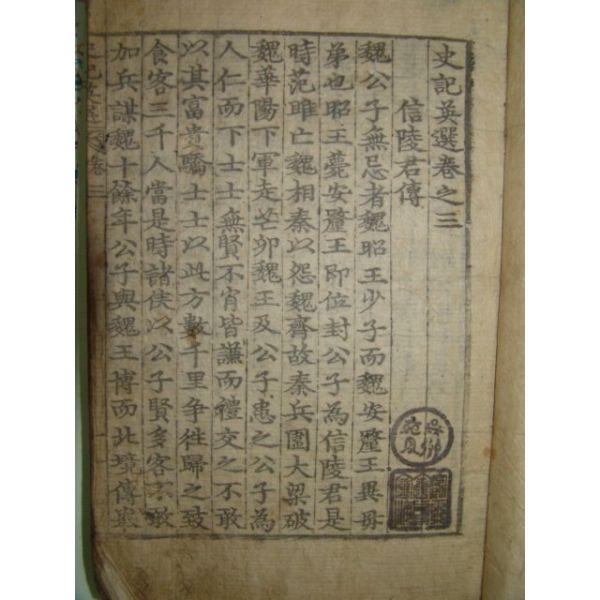 史記英選卷之三
信陵君傳
魏公子無忌者魏昭王少子而魏安釐王異母
弟也昭王薨安釐王即位封公子為信陵君是
時范雎亡魏相秦以怨魏齊故秦兵圍大梁破
魏華陽下軍走芒卯魏王及公子患之公子為
人仁而下士士無賢不肖皆謙而禮交之不敢
以其富貴驕士士以此方數千里爭徃歸之致
食客三千人當是時諸侯以公子賢多客不敢
加兵謀魏十餘年公子與魏王博而北境傳舉
史記英選 卷三